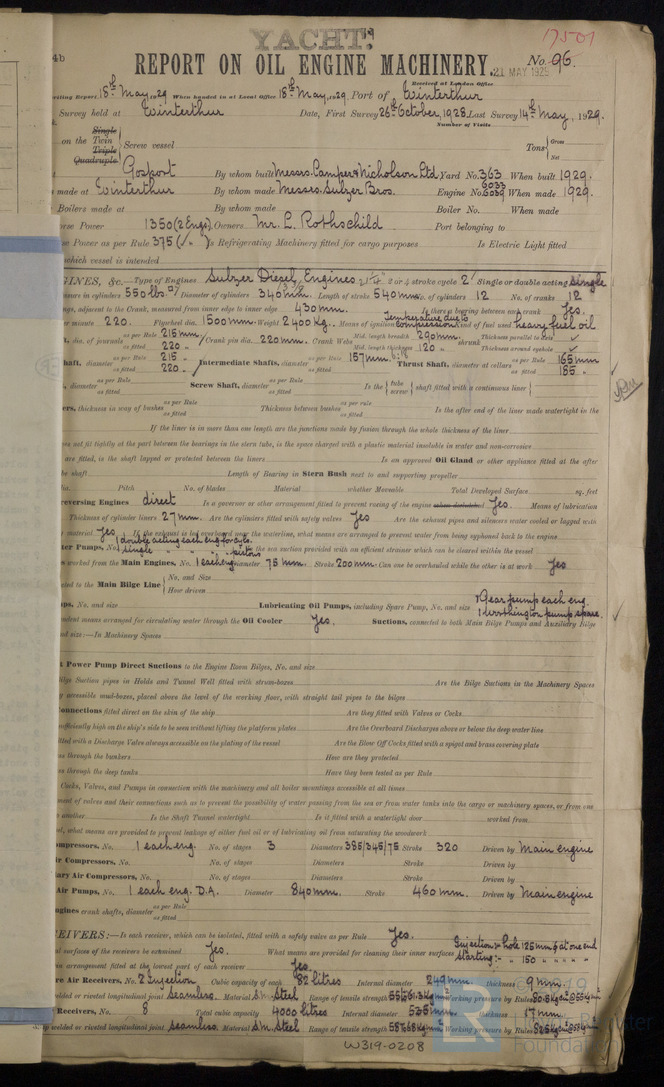 YACHT.
17501
4b
REPORT ON OIL ENGINE MACHINERY.
No. 96.
21 MAY 1929
Received at London Office
18th May, 1929 When handed in at Local Office 18th May, 1929. Port of Winterthur
Survey held at Winterthur Date, First Survey 26th October, 1928. Last Survey 14th May, 1929.
Number of Visits
on the Single Twin Triple Quadruple Screw vessel Tons Gross Net
Gosport By whom built Messrs. Camper & Nicholson Ltd Yard No. 363 When built 1929.
made at Winterthur By whom made Messrs. Sulzer Bros. Engine No. 6033 6039 When made 1929.
Boilers made at By whom made Boiler No. When made
Power 1350 (2 Engs). Owners Mr. L. Rothschild Port belonging to
Power as per Rule 375 Is Refrigerating Machinery fitted for cargo purposes Is Electric Light fitted
which vessel is intended
GINES, &c.—Type of Engines Sulzer Diesel Engines 2 or 4 stroke cycle 2 Single or double acting Single
pressure in cylinders 550 lbs. Diameter of cylinders 340 mm. Length of stroke 540 mm. No. of cylinders 12 No. of cranks 12
adjacent to the Crank, measured from inner edge to inner edge 430 mm. Is there a bearing between each crank Yes.
per minute 220. Flywheel dia. 1500 mm. Weight 2400 Kg. Means of ignition Temperature due to compression Kind of fuel used heavy fuel oil
dia. of journals as per Rule 215 mm as fitted 220 Crank pin dia. 220 mm. Crank Webs Mid. length breadth 290 mm. Mid. length thickness 120 shrunk Thickness parallel to axis Thickness around eyehole
as per Rule 215 as fitted 220 Intermediate Shafts, diameter as per Rule 157 mm. as fitted Thrust Shaft, diameter at collars as per Rule 165 mm as fitted 185
diameter as per Rule as fitted Screw Shaft, diameter as per Rule as fitted Is the tube screw shaft fitted with a continuous liner
thickness in way of bushes as per Rule as fitted Thickness between bushes as per rule as fitted Is the after end of the liner made watertight in the
If the liner is in more than one length are the junctions made by fusion through the whole thickness of the liner
not fit tightly at the part between the bearings in the stern tube, is the space charged with a plastic material insoluble in water and non-corrosive
are fitted, is the shaft lapped or protected between the liners Is an approved Oil Gland or other appliance fitted at the after
shaft Length of Bearing in Stern Bush next to and supporting propeller
No. Pitch No. of blades Material whether Moveable Total Developed Surface sq. feet
reversing Engines direct Is a governor or other arrangement fitted to prevent racing of the engine Yes. Means of lubrication
Thickness of cylinder liners 27 mm. Are the cylinders fitted with safety valves Yes Are the exhaust pipes and silencers water cooled or lagged with
material Yes. If the exhaust is led overboard near the waterline, what means are arranged to prevent water from being syphoned back to the engine
Pumps, No. 1 double acting each eng. for cyls. 1 single pistons the sea suction provided with an efficient strainer which can be cleared within the vessel
worked from the Main Engines, No. 1 each eng. Diameter 75 mm. Stroke 200 mm. Can one be overhauled while the other is at work Yes
to the Main Bilge Line No. and Size How driven
No. and size Lubricating Oil Pumps, including Spare Pump, No. and size 1 Gear pump each eng 1 Worthington pump spare.
means arranged for circulating water through the Oil Cooler Yes. Suctions, connected to both Main Bilge Pumps and Auxiliary Bilge
size:—In Machinery Spaces
Power Pump Direct Suctions to the Engine Room Bilges, No. and size
Bilge Suction pipes in Holds and Tunnel Well fitted with strum-boxes Are the Bilge Suctions in the Machinery Spaces
accessible mud-boxes, placed above the level of the working floor, with straight tail pipes to the bilges
Connections fitted direct on the skin of the ship Are they fitted with Valves or Cocks
sufficiently high on the ship's side to be seen without lifting the platform plates Are the Overboard Discharges above or below the deep water line
fitted with a Discharge Valve always accessible on the plating of the vessel Are the Blow Off Cocks fitted with a spigot and brass covering plate
through the bunkers How are they protected
through the deep tanks Have they been tested as per Rule
Cocks, Valves, and Pumps in connection with the machinery and all boiler mountings accessible at all times
of valves and their connections such as to prevent the possibility of water passing from the sea or from water tanks into the cargo or machinery spaces, or from one
another Is the Shaft Tunnel watertight Is it fitted with a watertight door worked from
what means are provided to prevent leakage of either fuel oil or of lubricating oil from saturating the woodwork
Compressors, No. 1 each eng. No. of stages 3 Diameters 385/345/75 Stroke 320 Driven by Main engine
Air Compressors, No. No. of stages Diameters Stroke Driven by
Air Compressors, No. No. of stages Diameters Stroke Driven by
Air Pumps, No. 1 each eng. D.A. Diameter 840 mm. Stroke 460 mm. Driven by Main engine
Engines crank shafts, diameter as per Rule as fitted
CEIVERS:—Is each receiver, which can be isolated, fitted with a safety valve as per Rule Yes.
surfaces of the receivers be examined Yes. What means are provided for cleaning their inner surfaces Injection:- hole 125 mm ϕ at one end Starting:- 150
arrangement fitted at the lowest part of each receiver Yes.
Air Receivers, No. 2 Injection Cubic capacity of each 82 litres Internal diameter 249 mm thickness 9 mm
welded or riveted longitudinal joint Seamless. Material S.M. Steel Range of tensile strength Working pressure by Rules
Receivers, No. 8 Total cubic capacity 4000 litres Internal diameter 535 mm thickness 17 mm
welded or riveted longitudinal joint Seamless. Material S.M. Steel Range of tensile strength Working pressure by Rules
W319-0208
© 2019
LR
Lloyd's Register
Foundation